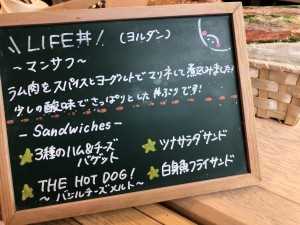 LIFE丼! (ヨルダン)
~マンサフ~
ラム肉をスパイスとヨーグルトでマリネして煮込みました!
少しの酸味でさっぱりとした丼ぶりです!
- Sandwiches -
3種のハム&チーズ
バゲット
THE HOT DOG!
~バジルチーズメルト~
ツナサラダサンド
白身魚フライサンド